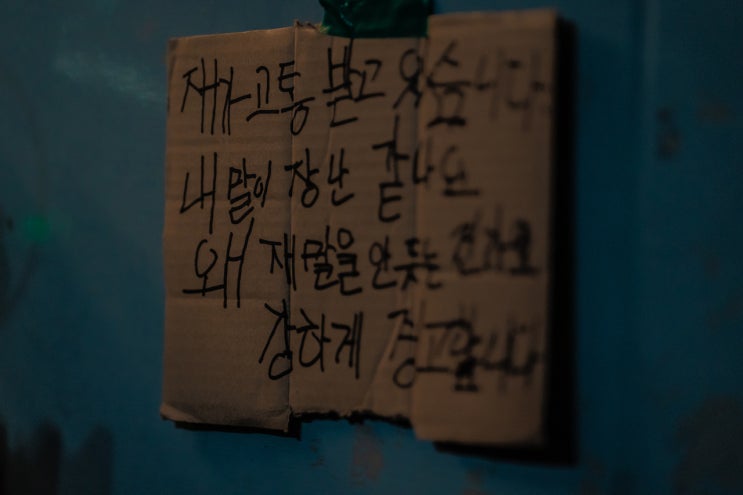 재가 고통 받고 있습니다.
내 말이 장난 같나요
왜 재 말을 안 듯는
강하게 경고합니다